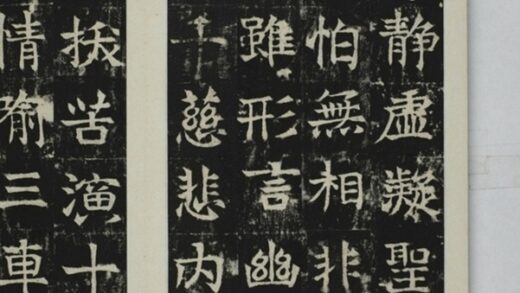 静虚凝聖
怕無相非
雖形言幽
十慈悲内
拔苦演十
情喻三車